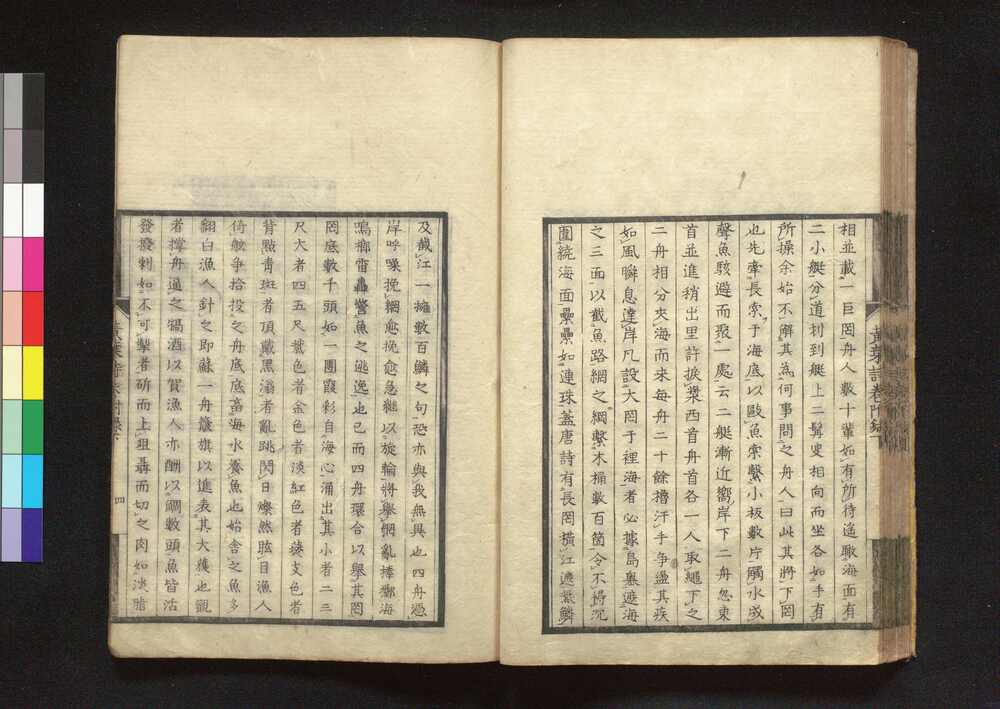 相並載一巨罔舟人數十輩如有所待遙瞰海面有
二小艇分道刲到艇上二髯叟相向而坐各如手有
所操余始不解其為何事問之舟人曰此其將下罔
也先牽長索于海底以敺魚索繫小板數片觸水成
聲魚駭避而聚一處云二艇漸近嚮岸下二舟忽東
首並進稍出里許捩柁西首舟首各一人取繩下之
二舟相分夾海而來每舟二十餘擼汗手争盪其疾
如風瞬息達岸凡設大罔于裡海者必據島嶼遮海
之三面以截魚路網之綱繫木桶數百箇令不掃沉
圍統海面纍纍如連珠蓋唐詩有長罔橫江遮紫鱗
及截江一擁數百鱗之句恐亦與我無異也四舟憑
岸呼噪挽綱愈挽愈急繼以旋輪將舉網亂捧嚮海
鳴榔雷轟驚魚之逃逸也已而四舟環合以舉其罔
罔底數千頭如一團霞彩自海心涌出其小者二三
尺大者四五尺紫色者金色者淡紅色者燕支色者
背點青斑者頂戴黑瀛者亂跳閃日燦然眩目漁人
倚舷争拾投之舟底底畜海水養魚也始舍之魚多
翻白漁人針之即蘇一舟簇旗以進表其大獲也觀
者撑舟逼之犒酒以賀漁人亦酬以鯛數頭魚皆活
發撥剌如不可擊者斫而上俎聶而切之肉如淡脂
黃葉詩卷附錄下
四